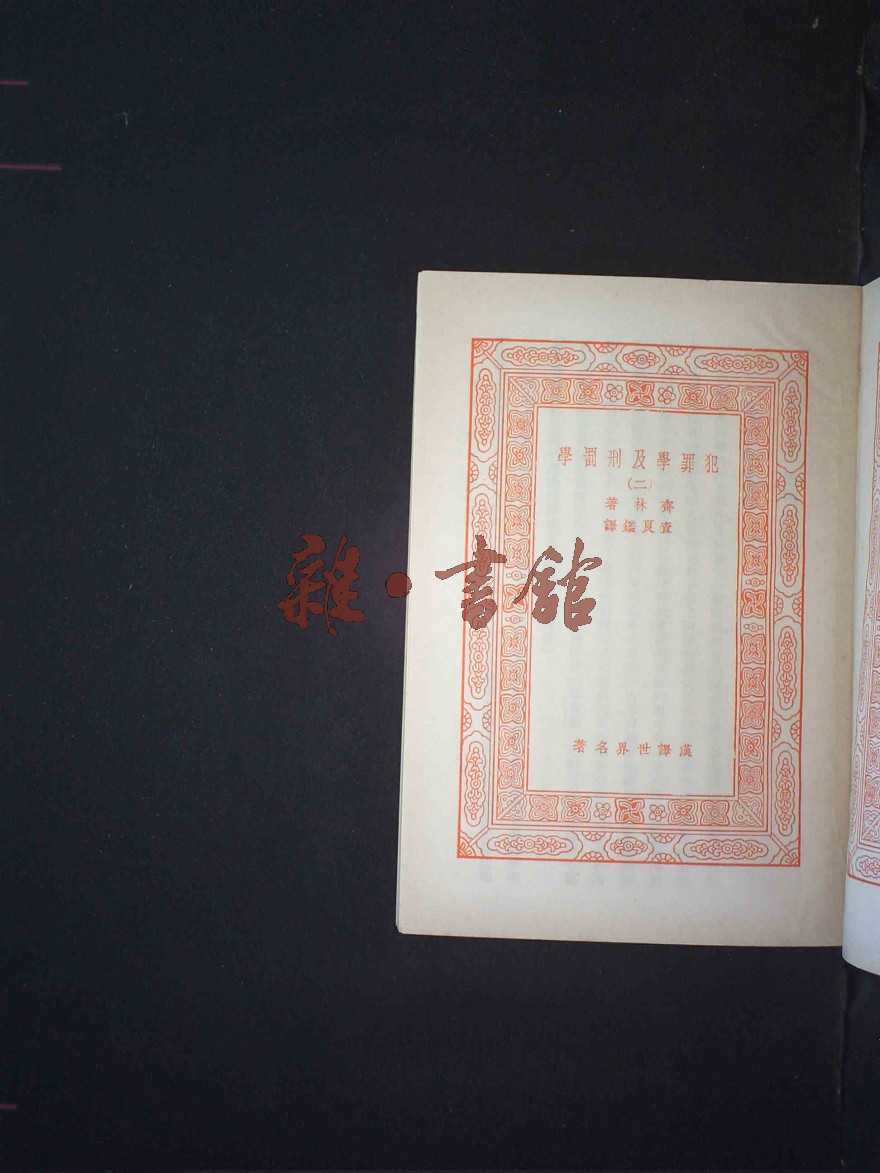 犯罪學及刑罰學
(二)
齊林著
查良鑑譯
雜·書館
漢譯世界名著